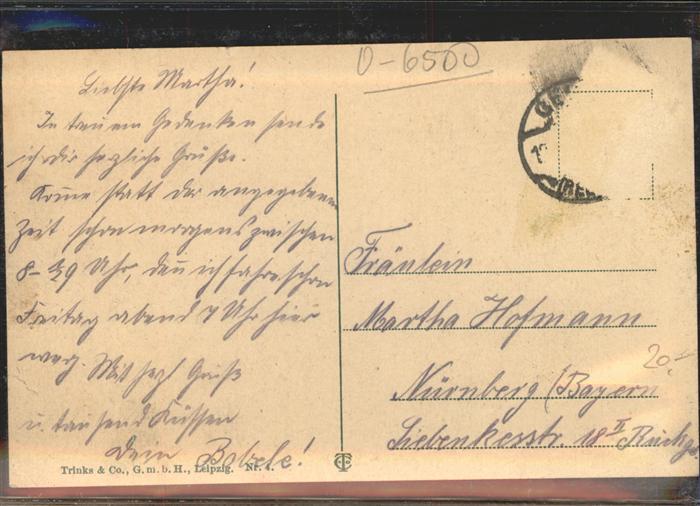 0-6500
Liebste Martha!
In treuem Gedenken sende
ich dir herzliche Grüße.
Komme statt der angegebenen
Zeit schon morgens zwischen
8-¾9 Uhr, denn ich fahre schon
Freitag abend 7 Uhr hier
weg. Mit herzl Gruß
u. tausend Küssen
Dein
Trinks & Co., G. m. b. H., Leipzig. Nr. 4.
Fräulein
Martha Hofmann
Nürnberg (Bayern
Siebenkeesstr. 18 II Rückg.
20.-